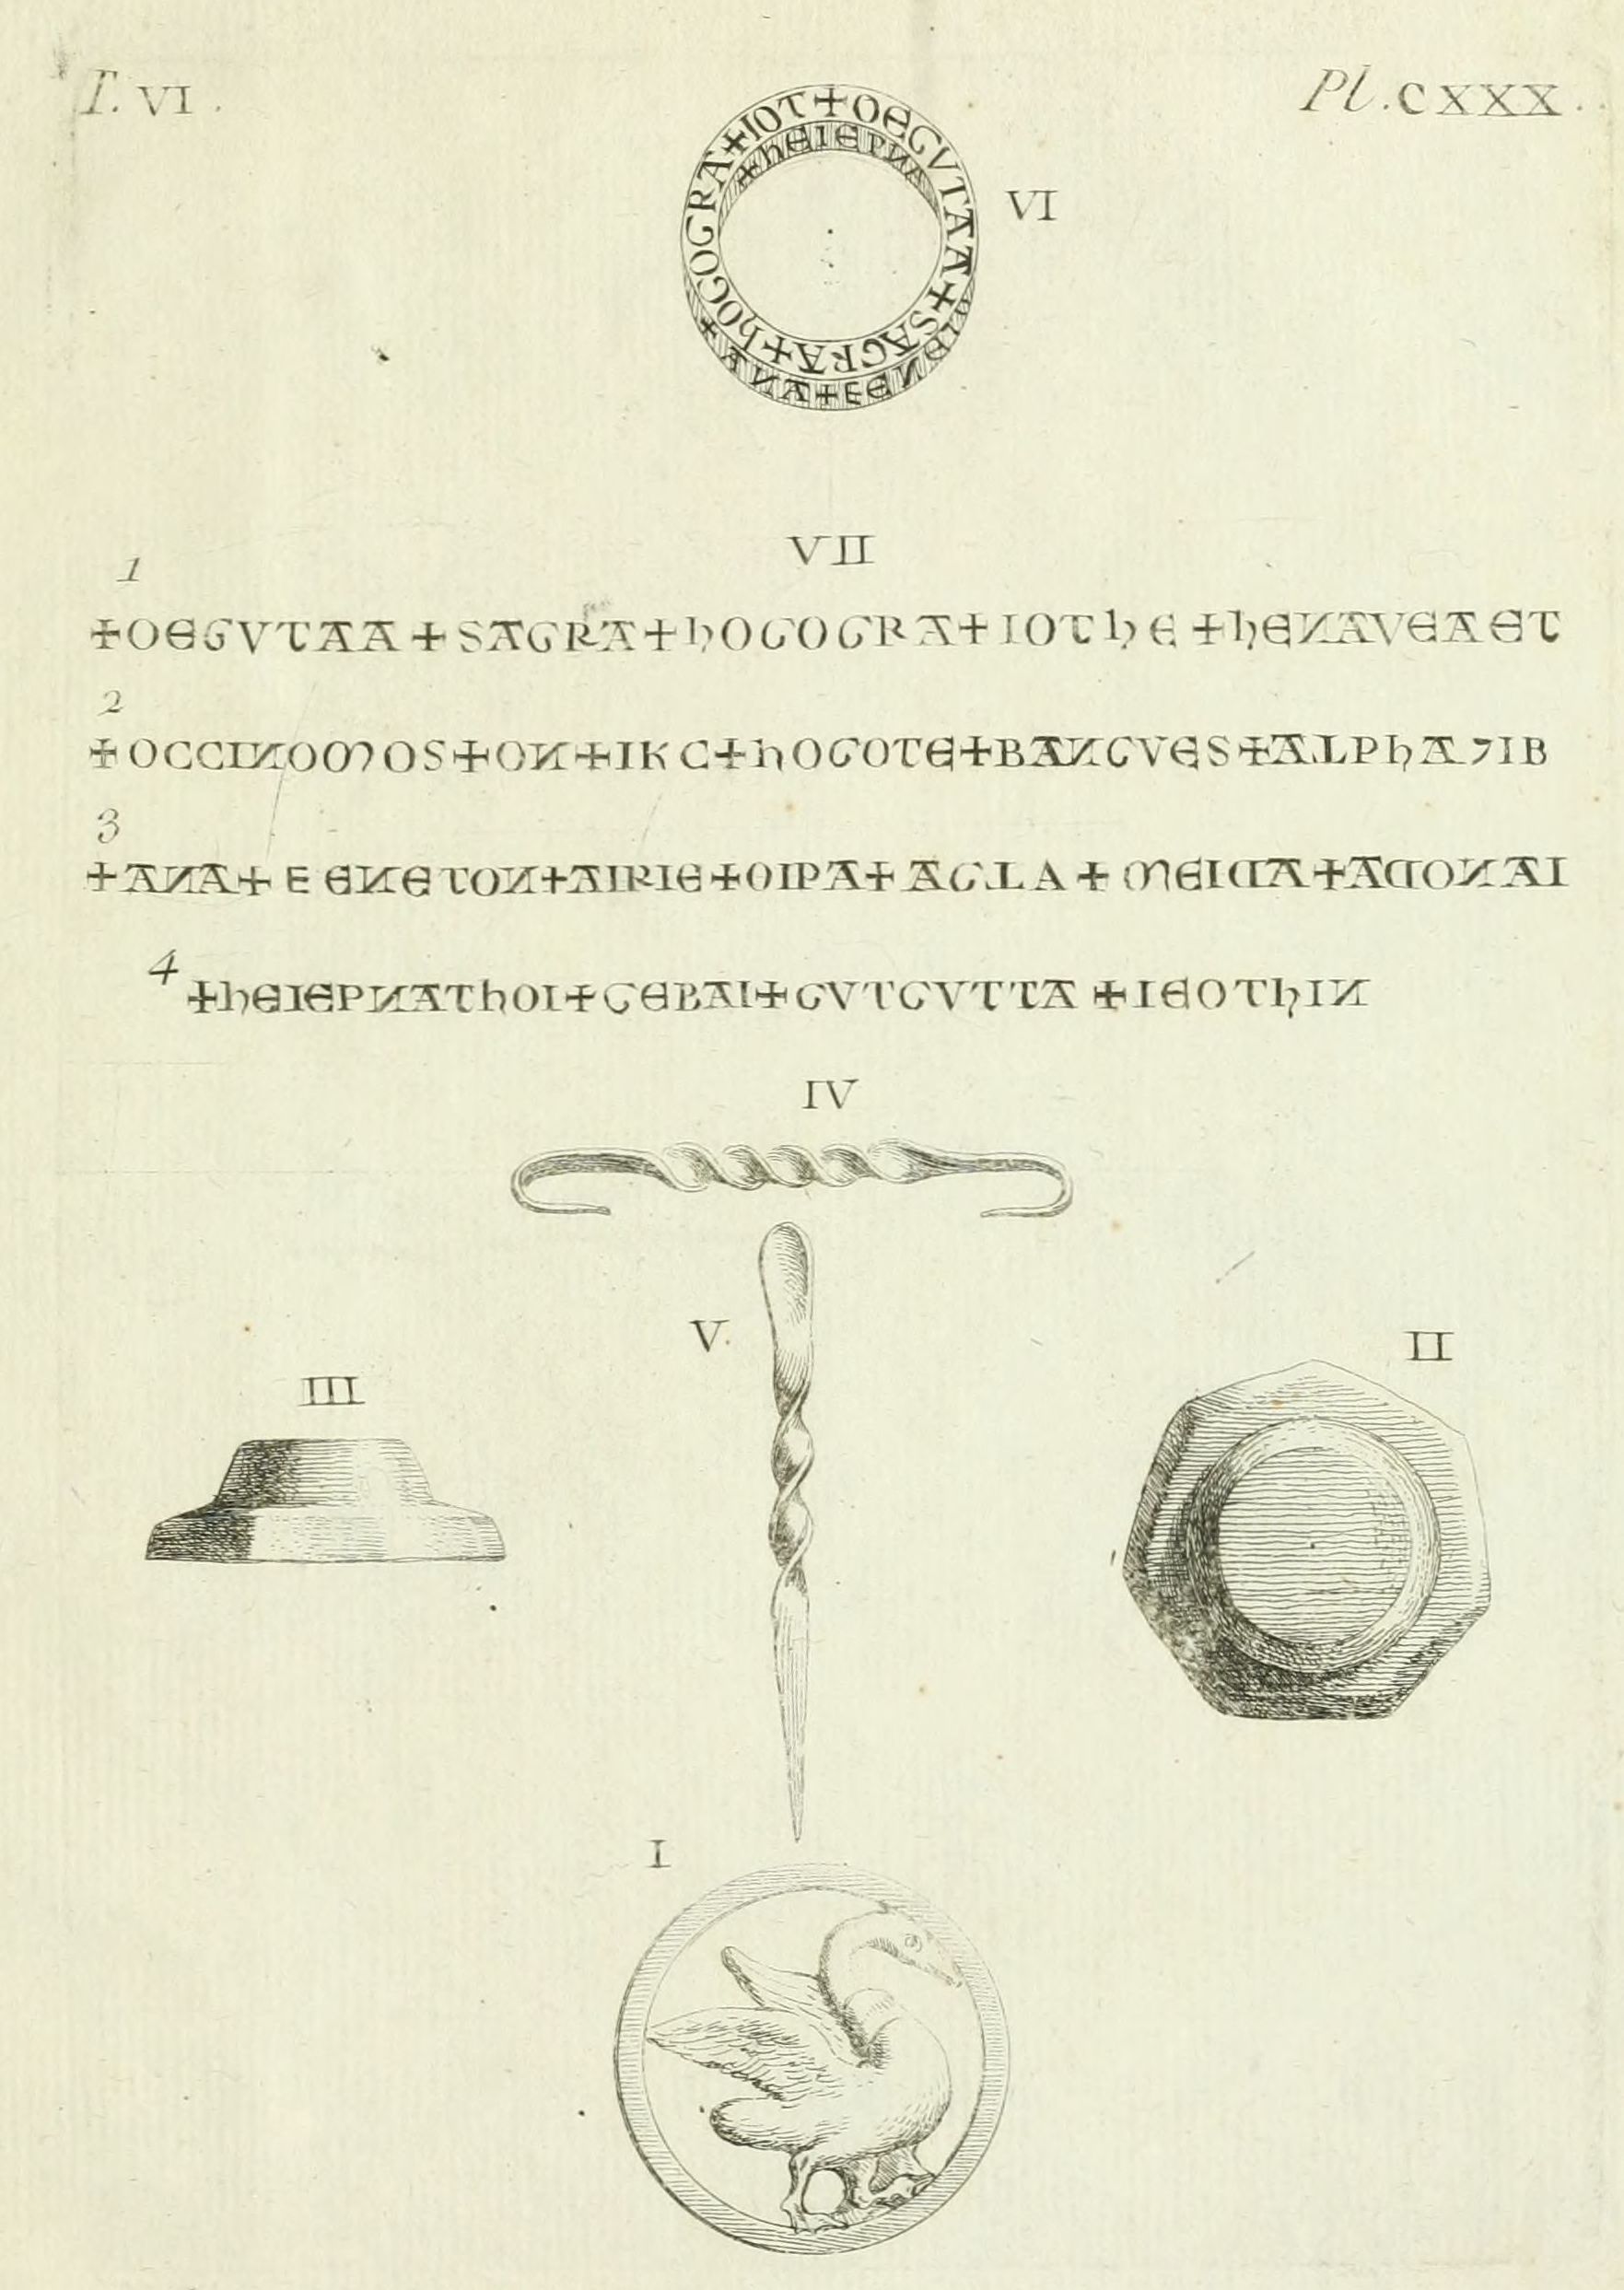 T. VI.
Pl. CXXX.
+IOT+OEGVTAA+SAGRA+hOGOGRA
+hEIEPNA
+ANA+EENE
VI
VII
1
+OEGVTAA+SAGRA+hOGOGRA+IOThE+hENAVEAET
2
+OCCINOMOS+ON+IKC+hOGOTE+BANGVES+ALPhA7IB
3
+ANA+EENETON+AIRIE+OIPA+AGLA+MEIDA+ADONAI
4
+hEIEPNAThOI+GEBAI+GVTGVTTA+IEOThIN
IV
V.
II
III
I